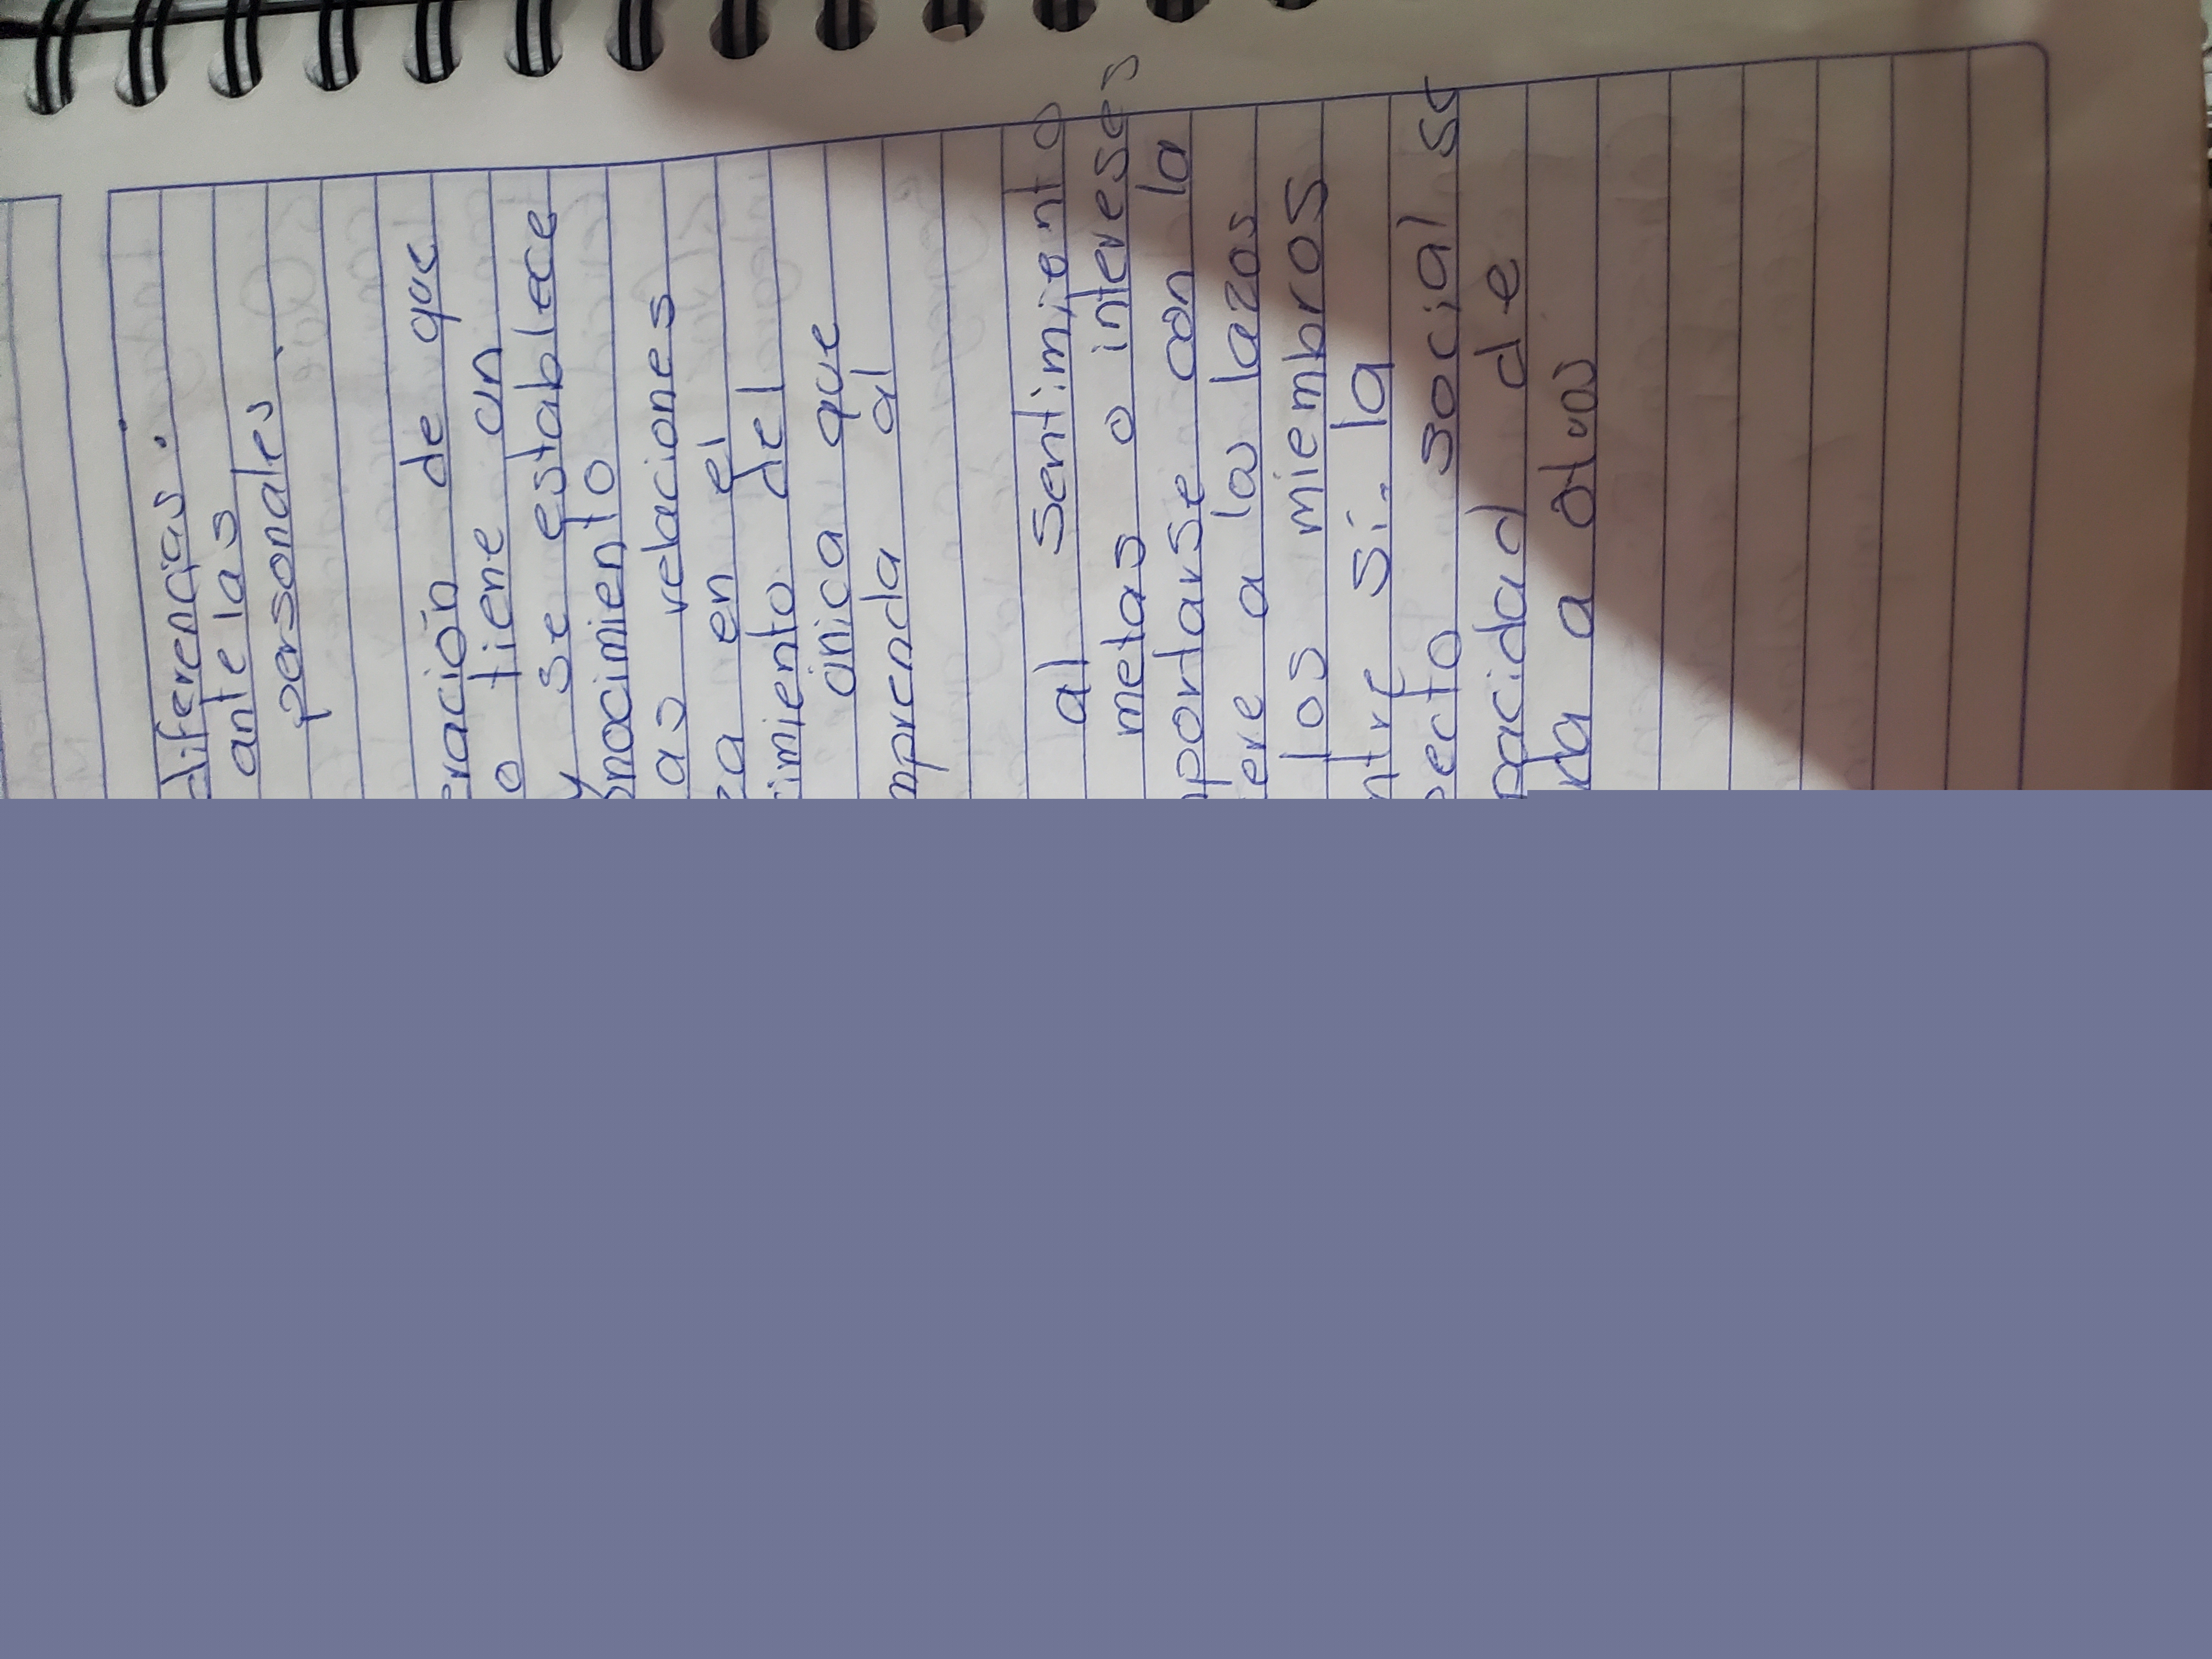 diferencias.
ante las
personales.
eración de que
o tiene un
y se establece
onocimiento
as relaciones
za en el
imiento del
única que
mprenda al
al sentimiento
metas o intereses
mportarse con la
ere a los lazos
los miembros
ntre si. la
ecto social se
pacidad de
da a otros